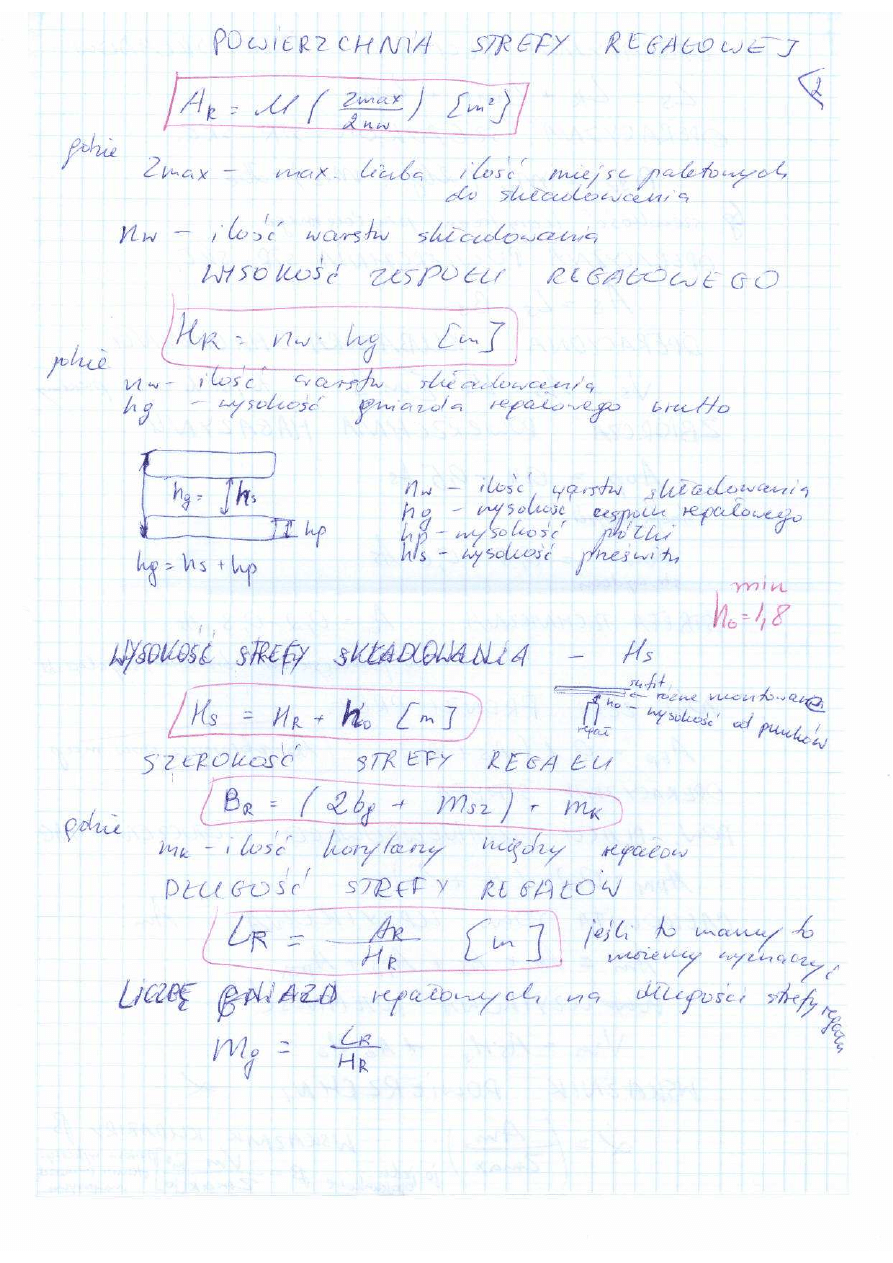 POWIERZCHNIA STREFY REGAŁOWEJ
2
AR = M ( Zmax / 2nw ) [m²]
gdzie
Zmax – max. liczba ilość miejsc paletowych
do składowania
nw – ilość warstw składowania
WYSOKOŚĆ ZESPOŁU REGAŁOWEGO
HR = nw · hg [m]
gdzie
nw – ilość warstw składowania
hg – wysokość gniazda regałowego brutto
hg = hs
hp
hg = hs + hp
nw – ilość warstw składowania
hg – wysokość zespołu regałowego
hp – wysokość półki
hs – wysokość prześwitu
min
ho = 1,8
WYSOKOŚĆ STREFY SKŁADOWANIA – Hs
sufit
ho
– różne montowane
– wysokość od punktów
regał
Hs = HR + ho [m]
SZEROKOŚĆ STREFY REGAŁU
BR = (2bg + Msz) · mk
gdzie
mk – ilość korytarzy między regałów
DŁUGOŚĆ STREFY REGAŁÓW
LR = AR / HR [m] jeśli to mamy to
możemy wyznaczyć
LICZBĘ GNIAZD regałowych na długości strefy regałów
Mg = LR / HR